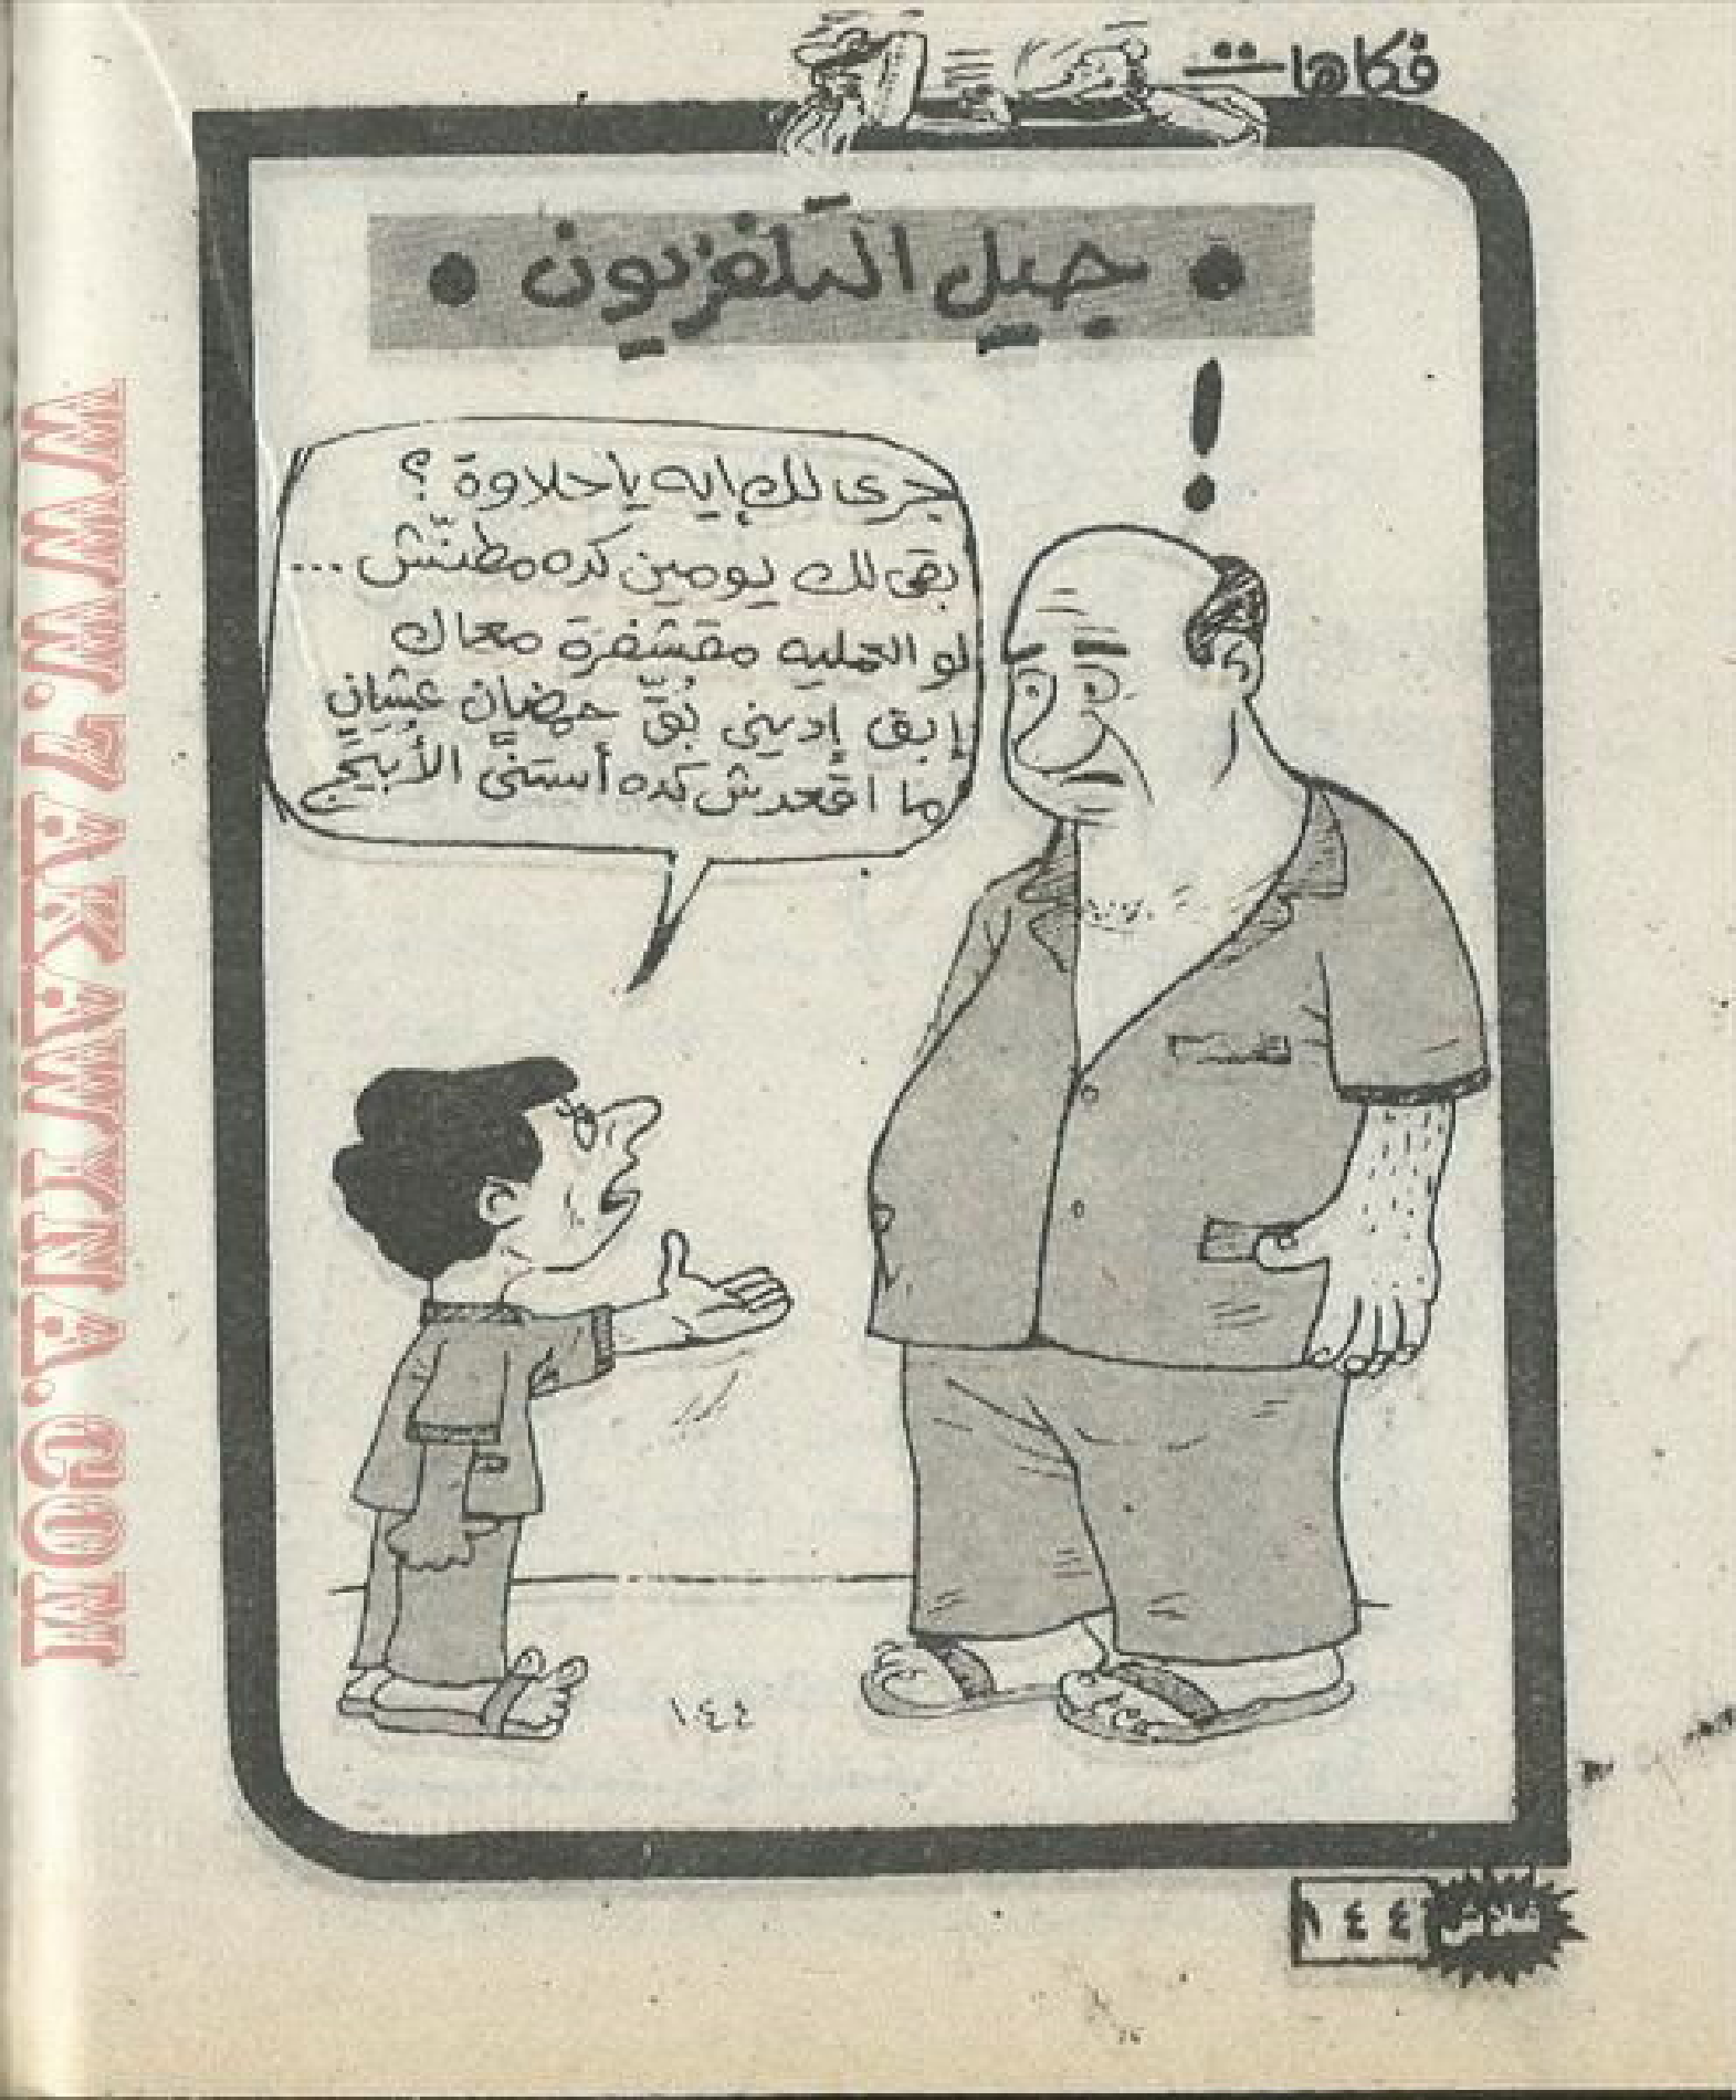 فكاهات
• جيل التلفزيون •
!
جرى لك إيه يا حلاوة ؟
بقى لك يومين كده مطنّش ...
لو العمليه مقشفرة معاك
إبق إديني بُقّ حمضان عشان
ما اقعدش كده أستنَّى الأبيَّج
١٤٤
فلاش ١٤٤
WWW.7AKAWITNA.COM